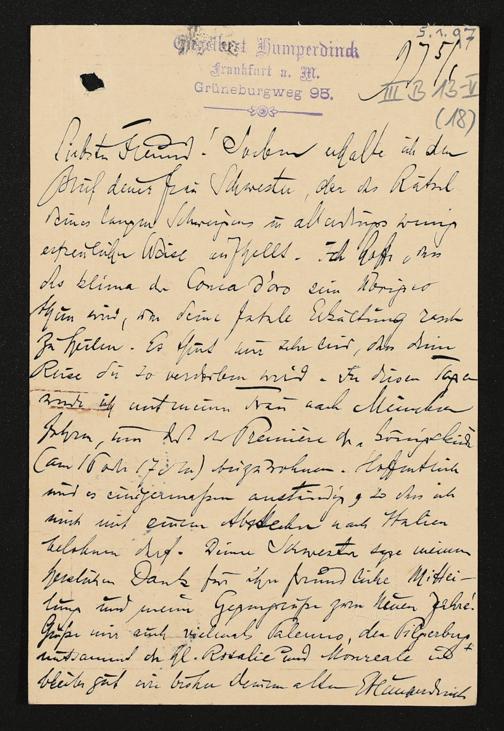 5.1.97
Engelbert Humperdinck
Frankfurt a. M.
Grüneburgweg 95.
5/1
III B 13-V
(18)
Liebster Freund! Soeben erhalte ich den
Brief deiner Frau Schwester, der das Rätsel
deines langen Schweigens in allerdings wenig
erfreulicher Weise aufhellt. Ich hoffe, dass
das Klima der Conca d'oro sein übriges
thun wird, um deine fatale Erkältung rasch
zu heilen. Es thut mir sehr leid, dass deine
Reise dir so verdorben wird. In diesen Tagen
werde ich mit meiner Frau nach München
fahren, um dort der Première der "Königskinder
(am 16 oder 17 d. M.) beizuwohnen. Hoffentlich
wird es einigermassen anständig, so dass ich
mich mit einem Abstecher nach Italien
belohnen darf. Deiner Schwester sage meinen
herzlichen Dank für ihre freundliche Mittei-
lung und meine Gegengrüsse zum Neuen Jahre!
Grüsse mir auch vielmals Palermo, den Pilgerberg
mitsammt der hl. Rosalie und Monreale und
bleibe gut wie bisher deinem alten EHumperdinck